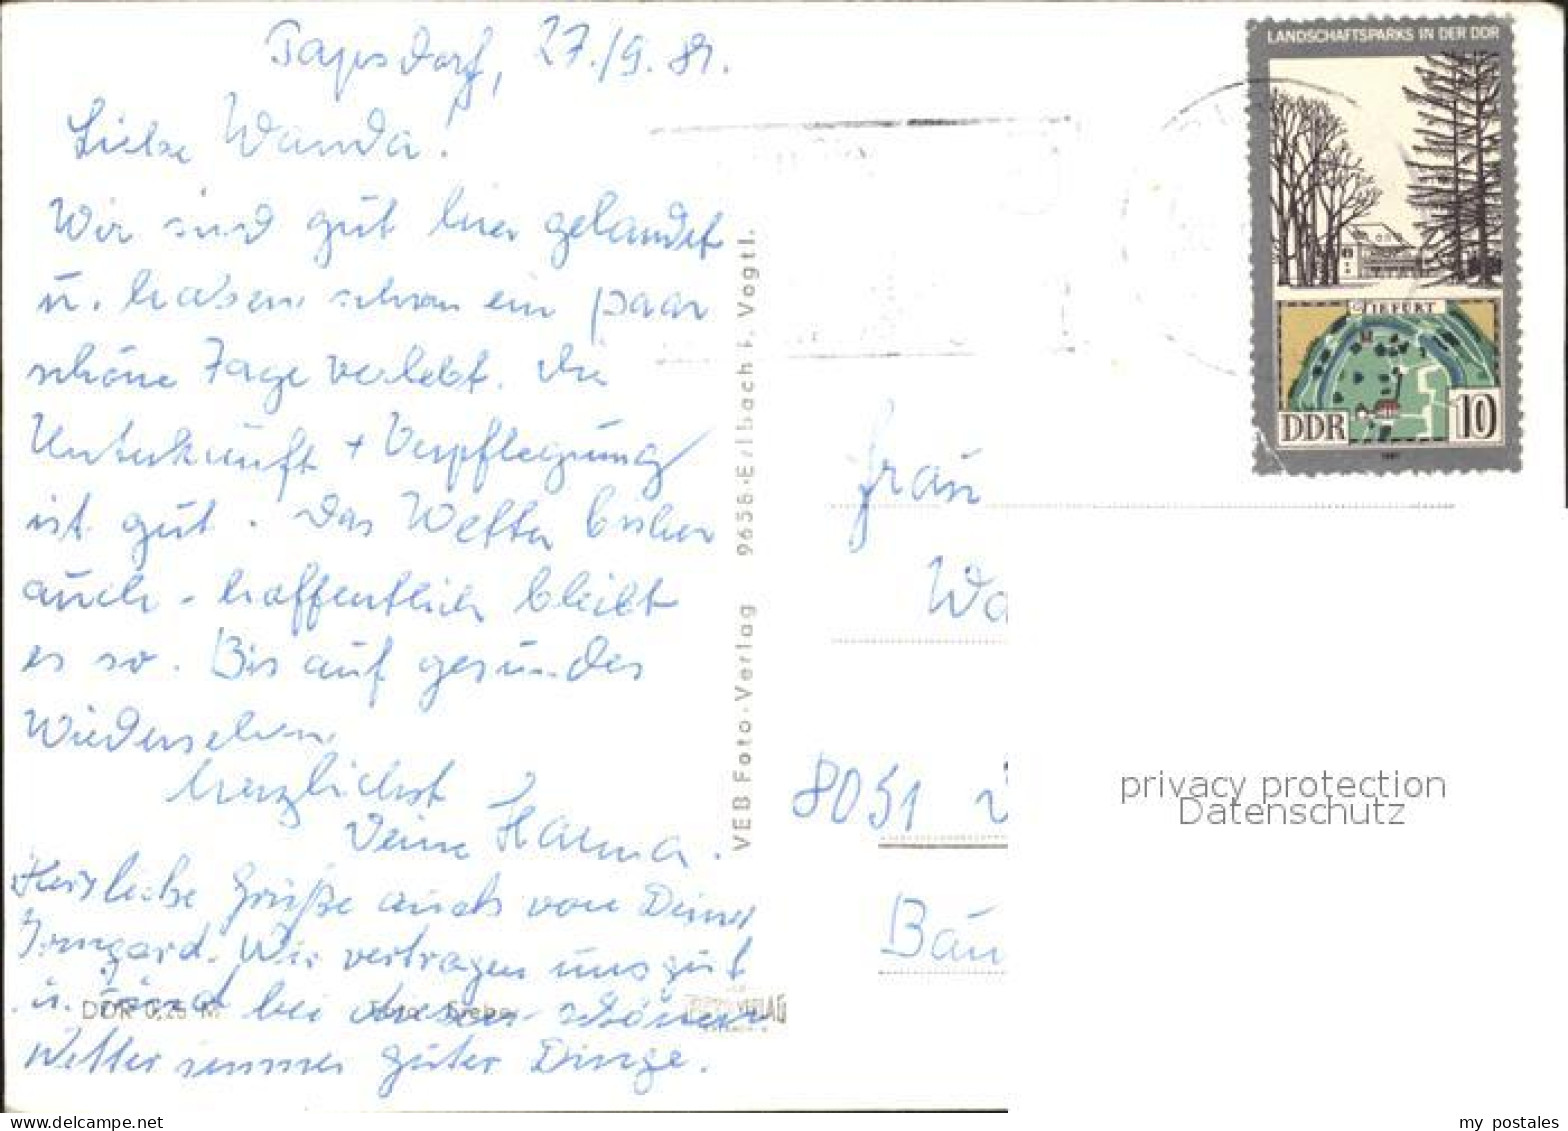 Papsdorf, 27./9. 81.
Liebe Wanda!
Wir sind gut hier gelandet
u. haben schon ein paar
schöne Tage verlebt. Die
Unterkunft + Verpflegung
ist gut. Das Wetter bisher
auch - hoffentlich bleibt
es so. Bis auf gesundes
Wiedersehen
herzlichst
Deine Hanna.
Herzliche Grüße auch von Deiner
Irmgard. Wir vertragen uns gut
u. sind bei diesem schönen
Wetter immer guter Dinge.
DDR 0,25 M
VEB Foto-Verlag 9656 Erlbach i. Vogtl.
LANDSCHAFTSPARKS IN DER DDR
TIEFURT
DDR 10
1981
Frau
Wa
8051
Bau
privacy protection
Datenschutz
my postales